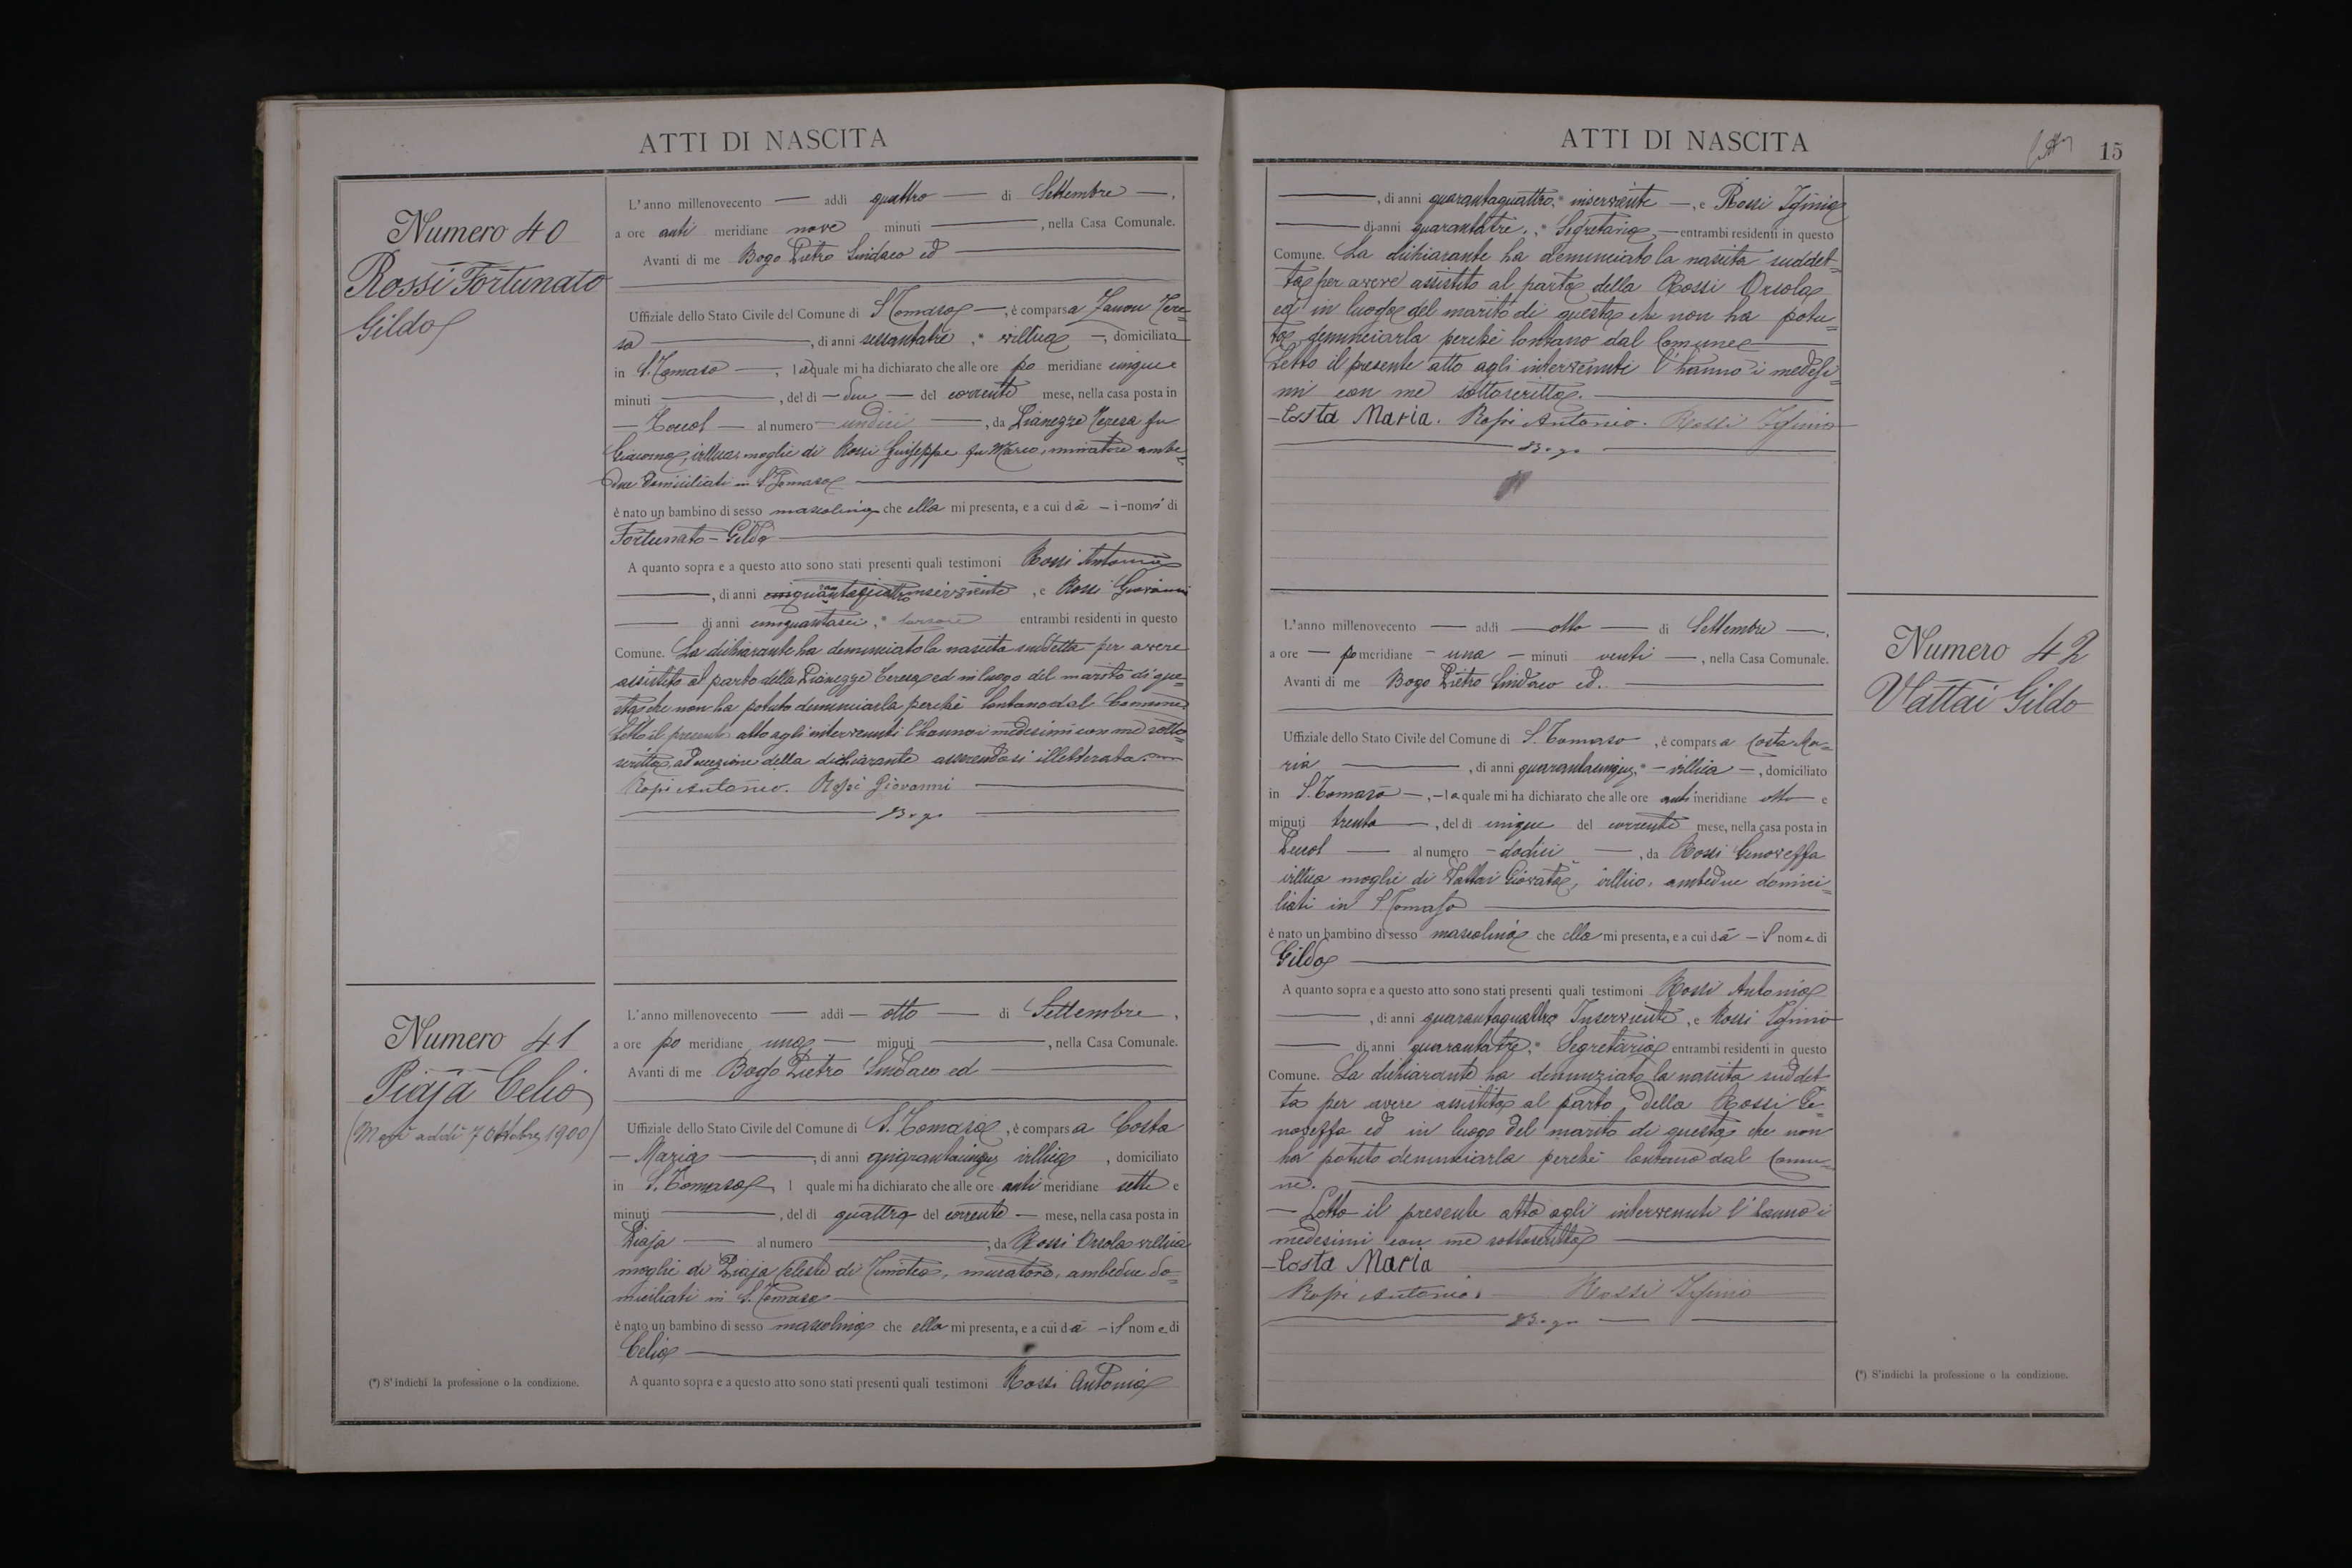 ATTI DI NASCITA
Numero 40
Rossi Fortunato
Gildo
L'anno millenovecento — addì quattro — di Settembre —,
a ore anti meridiane nove minuti —, nella Casa Comunale.
Avanti di me Bogo Pietro Sindaco ed
Uffiziale dello Stato Civile del Comune di S. Tomaso —, è comparsa Zanon Tere=
sa —, di anni sessantatre, * villica —, domiciliato
in S. Tomaso —, la quale mi ha dichiarato che alle ore po meridiane cinque e
minuti —, del dì — due — del corrente mese, nella casa posta in
— al numero — undici —, da Pianezze Teresa fu
Giacomo, villica moglie di Rossi Giuseppe fu Marco, minatore ambe=
due domiciliati in S. Tomaso —
è nato un bambino di sesso mascolino che ella mi presenta, e a cui dà — i nomi di
Fortunato - Gildo —
A quanto sopra e a questo atto sono stati presenti quali testimoni Rossi Antonio
—, di anni inserviente, e Rossi Giovanni
— di anni cinquantasei, * entrambi residenti in questo
Comune. La dichiarante ha denunciato la nascita suddetta per avere
assistito al parto della Pianezze Teresa ed in luogo del marito di que=
sta che non ha potuto denunciarla perchè lontano dal Comune
Letto il presente atto agli intervenuti l'hanno i medesimi con me sotto=
scritto, ad eccezione della dichiarante essendosi illetterata. —
Rossi Antonio. Rossi Giovanni —
— Bogo —
Numero 41
Piaja Celio
(Morì addì 7 Ottobre 1900)
L'anno millenovecento — addì — otto — di Settembre,
a ore po meridiane una — minuti —, nella Casa Comunale.
Avanti di me Bogo Pietro Sindaco ed —
Uffiziale dello Stato Civile del Comune di S. Tomaso, è comparsa Costa
— Maria —, di anni quarantacinque villica, domiciliato
in S. Tomaso, l quale mi ha dichiarato che alle ore anti meridiane sette e
minuti —, del dì quattro del corrente — mese, nella casa posta in
Piaja — al numero —, da Rossi Orsola villica
moglie di Piaja Celeste di Timoteo, muratore, ambedue do=
miciliati in S. Tomaso —
è nato un bambino di sesso mascolino che ella mi presenta, e a cui dà — il nome di
Celio —
A quanto sopra e a questo atto sono stati presenti quali testimoni Rossi Antonio
(*) S'indichi la professione o la condizione.
ATTI DI NASCITA
15
—, di anni quarantaquattro, * inserviente —, e Rossi Igino
— di anni quarantatre, * Segretario, — entrambi residenti in questo
Comune. La dichiarante ha denunciato la nascita suddet=
ta per avere assistito al parto della Rossi Orsola
ed in luogo del marito di questa che non ha potu=
to denunciarla perchè lontano dal Comune —
Letto il presente atto agli intervenuti l'hanno i medesi=
mi con me sottoscritto. —
— Costa Maria. Rossi Antonio. Rossi Igino —
— Bogo —
Numero 42
Vattai Gildo
L'anno millenovecento — addì — otto — di Settembre —,
a ore — po meridiane — una — minuti venti —, nella Casa Comunale.
Avanti di me Bogo Pietro Sindaco ed. —
Uffiziale dello Stato Civile del Comune di S. Tomaso, è comparsa Costa Ma=
ria —, di anni quarantacinque, * — villica —, domiciliato
in S. Tomaso —, — la quale mi ha dichiarato che alle ore anti meridiane otto — e
minuti trenta —, del dì cinque del corrente mese, nella casa posta in
Pecol — al numero — dodici —, da Rossi Genoveffa
villica moglie di Vattai Giovanni, villico, ambedue domici=
liati in S. Tomaso —
è nato un bambino di sesso mascolino che ella mi presenta, e a cui dà — il nome di
Gildo —
A quanto sopra e a questo atto sono stati presenti quali testimoni Rossi Antonio
—, di anni quarantaquattro Inserviente, e Rossi Igino
— di anni quarantatre, * Segretario entrambi residenti in questo
Comune. La dichiarante ha denunziato la nascita suddet
ta per avere assistito al parto, della Rossi Ge=
noveffa ed in luogo del marito di questa che non
ha potuto denunciarla perchè lontano dal Comu=
ne. —
— Letto il presente atto agli intervenuti l'hanno i
medesimi con me sottoscritto —
— Costa Maria
Rossi Antonio. — Rossi Igino
— Bogo —
(*) S'indichi la professione o la condizione.